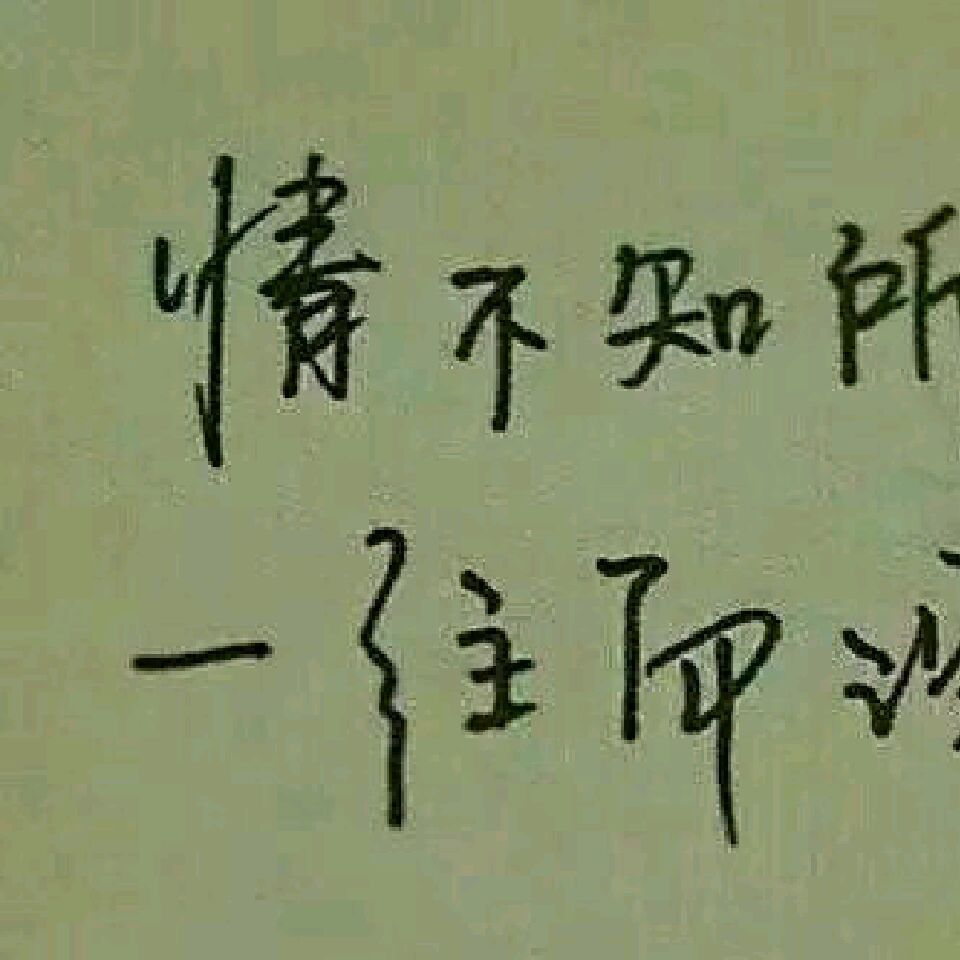 情不知所
一往而